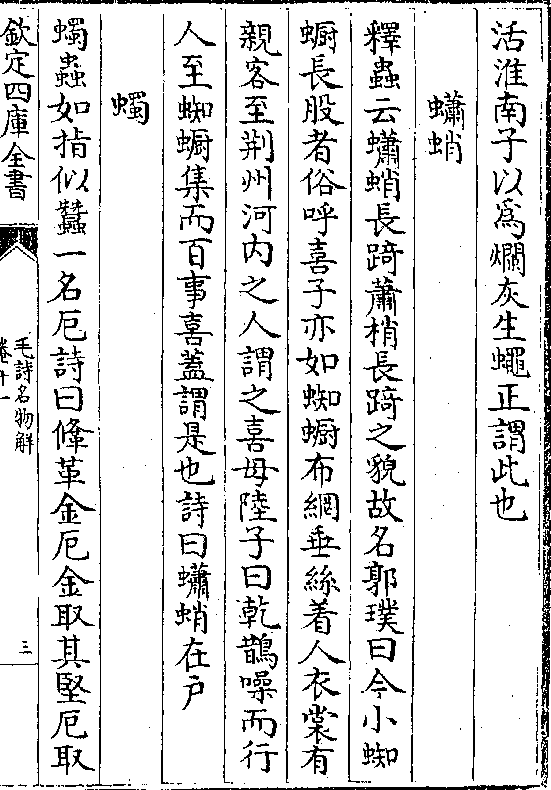 活淮南子以為爛灰生蠅正謂此也
蠨蛸
釋蟲云蠨蛸長踦蕭梢長踦之貌故名郭璞曰今小蜘
蟵長股者俗呼喜子亦如蜘蟵布網垂絲着人衣裳有
親客至荆州河内之人謂之喜母陸子曰乾鵲噪而行
人至蜘蟵集而百事喜蓋謂是也詩曰蠨蛸在户
蠋
蠋蟲如指似蠶一名厄詩曰鞗革金厄金取其堅厄取
欽定四庫全書
毛詩名物解
卷十一
三